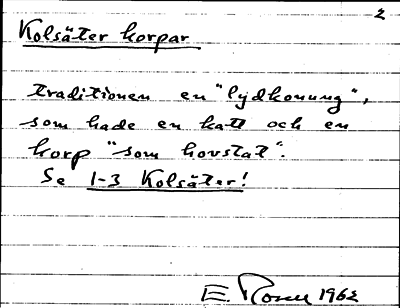 2
Kolsäter korpar
traditionen en "lydkonung",
som hade en katt och en
korp "som hovstat".
Se 1-3 Kolsäter!
E. 1962